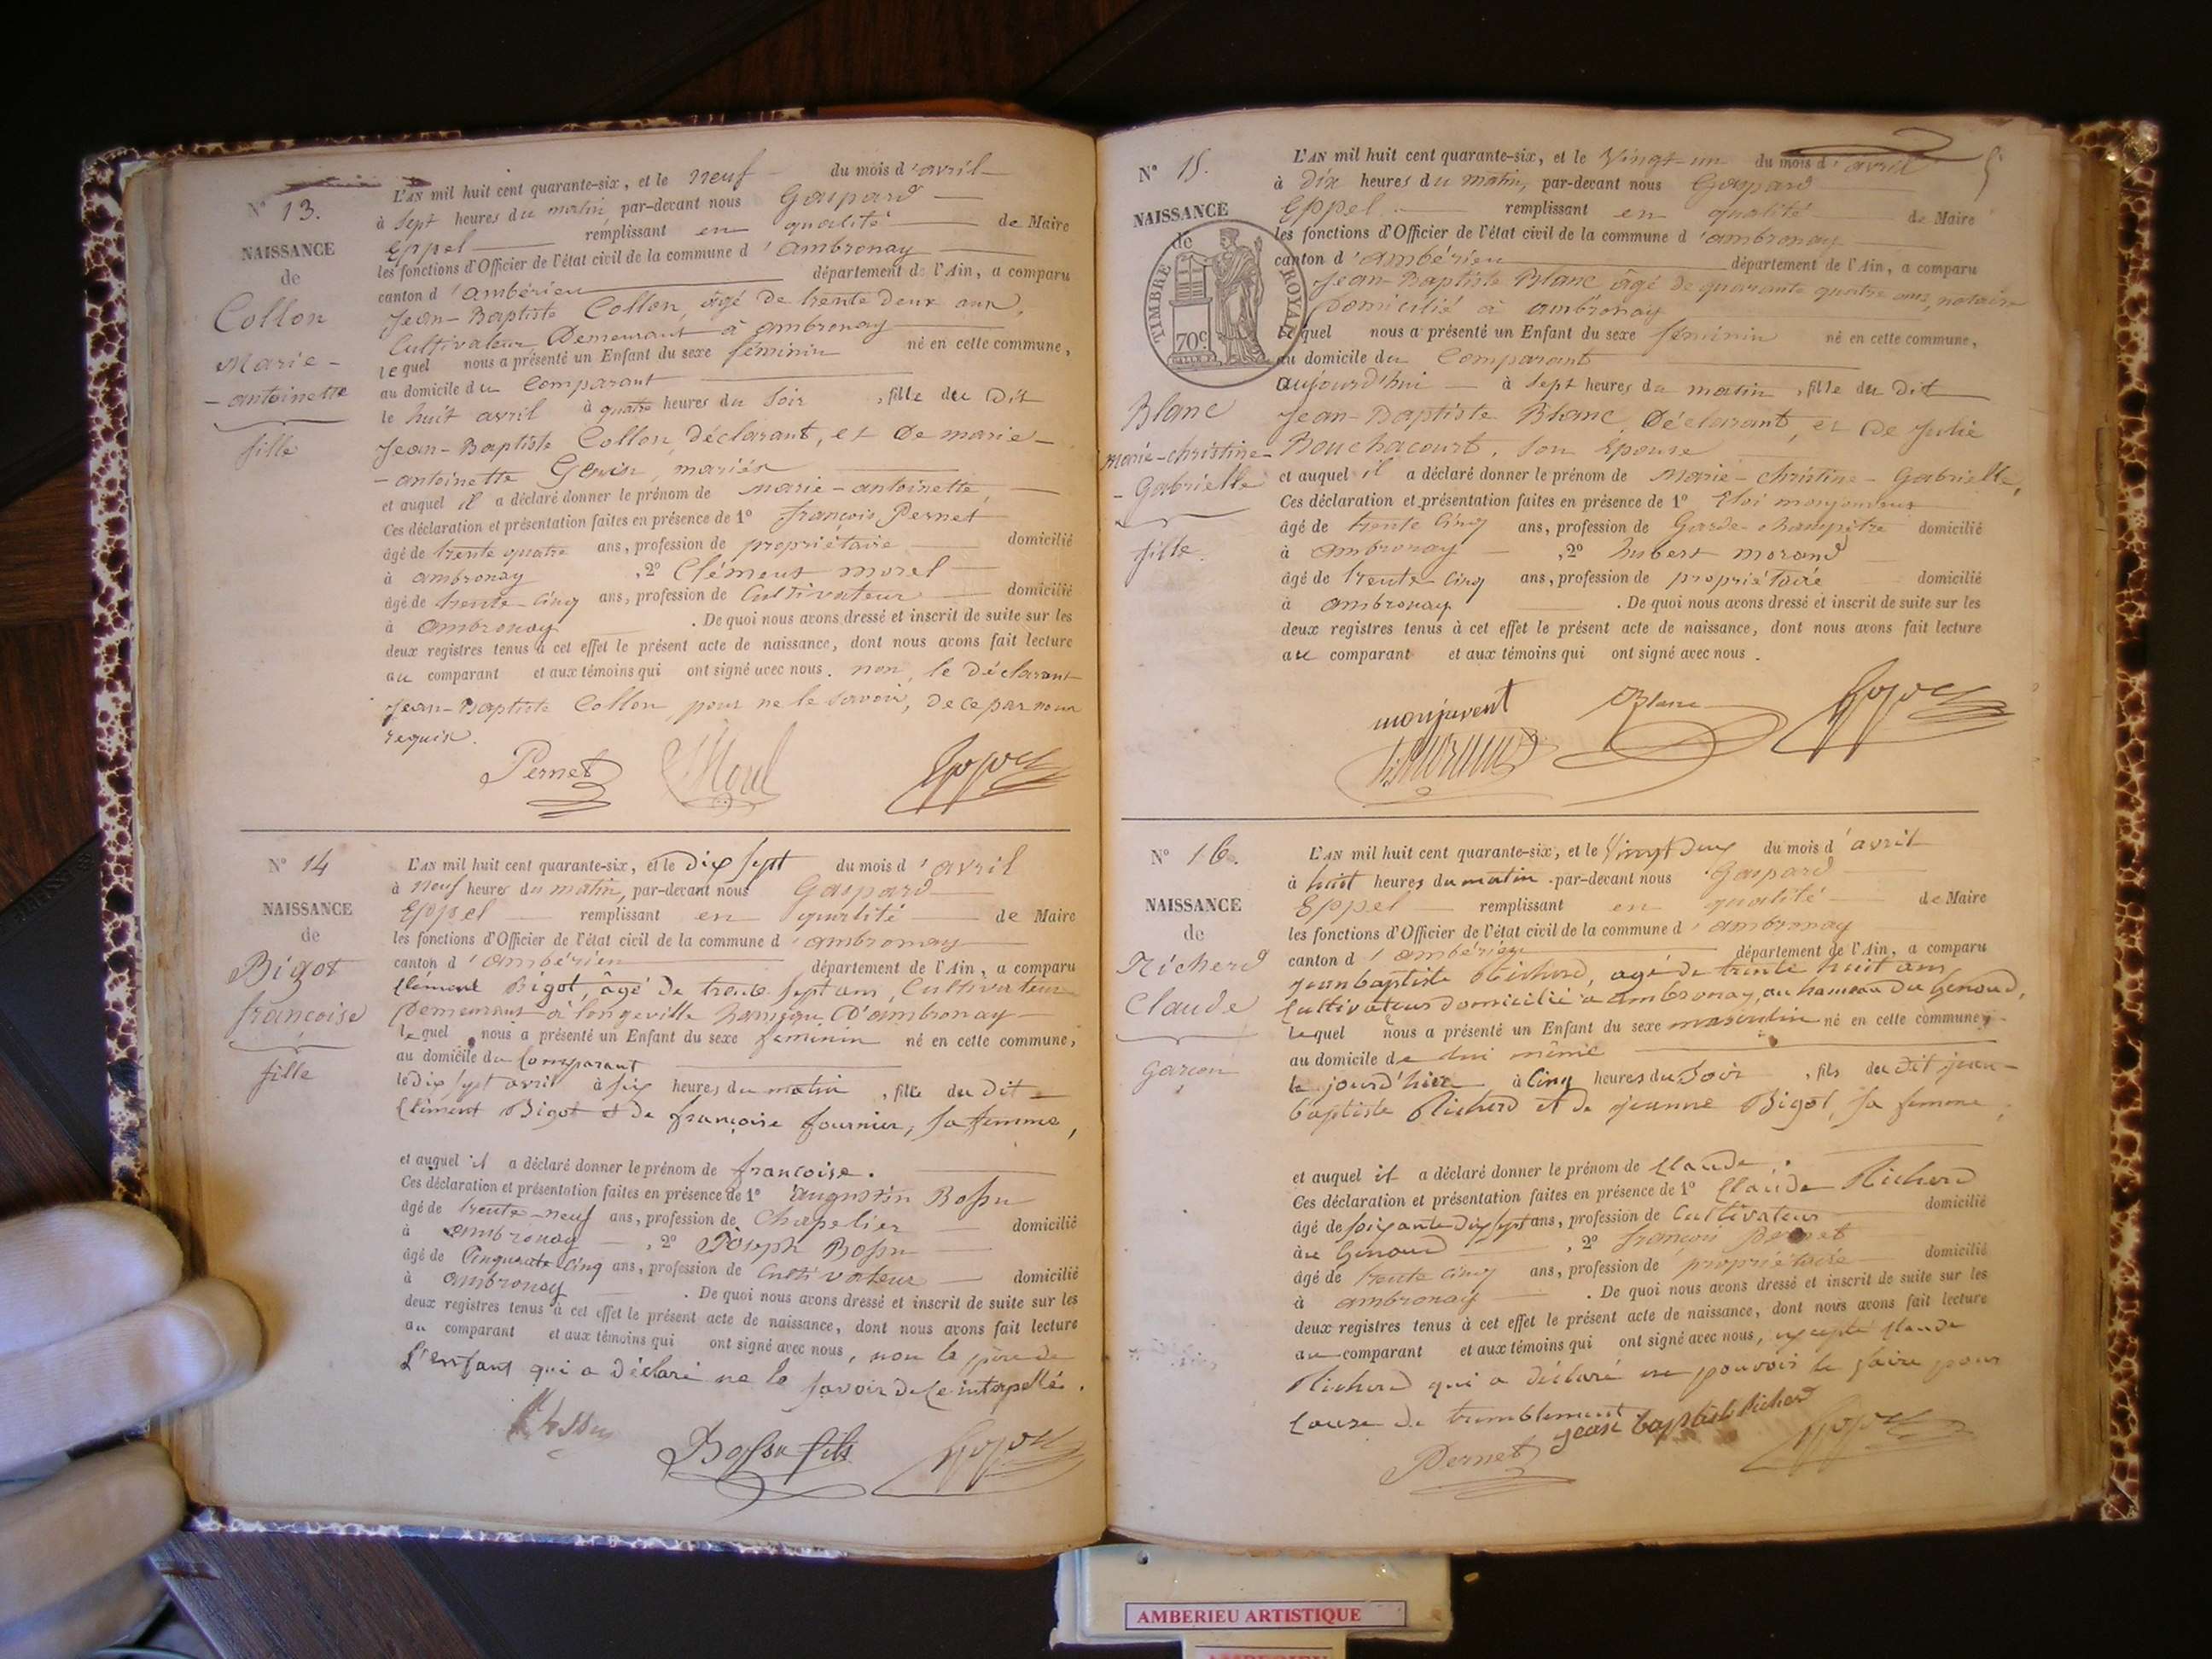 N° 13.
NAISSANCE
de
Collon
Marie-
-antoinette
fille
L'AN mil huit cent quarante-six, et le neuf du mois d'avril
à sept heures du matin, par-devant nous Gaspard
Eppel remplissant en qualité de Maire
les fonctions d'Officier de l'état civil de la commune d'ambronay
canton d'ambérieu département de l'Ain, a comparu
Jean-Baptiste Collon, âgé de trente deux ans,
Cultivateur Demeurant à ambronay
lequel nous a présenté un Enfant du sexe féminin né en cette commune,
au domicile du Comparant
le huit avril à quatre heures du Soir, fille du Dit
Jean-Baptiste Collon, déclarant, et De marie-
-antoinette mariés
et auquel il a déclaré donner le prénom de marie-antoinette,
Ces déclaration et présentation faites en présence de 1° françois Pernet
âgé de trente quatre ans, profession de propriétaire domicilié
à ambronay, 2° Clément morel
âgé de trente-cinq ans, profession de Cultivateur domicilié
à ambronay. De quoi nous avons dressé et inscrit de suite sur les
deux registres tenus à cet effet le présent acte de naissance, dont nous avons fait lecture
au comparant et aux témoins qui ont signé avec nous. non, le déclarant
Jean-Baptiste Collon, pour ne le savoir, de ce par nous
requis.
Pernet Morel
N° 14
NAISSANCE
de
Bigot
françoise
fille
L'AN mil huit cent quarante-six, et le Dix sept du mois d'avril
à neuf heures du matin, par-devant nous Gaspard
Eppel remplissant en qualité de Maire
les fonctions d'Officier de l'état civil de la commune d'ambronay
canton d'ambérieu département de l'Ain, a comparu
Clément Bigot, âgé De trente sept ans, Cultivateur
Demeurant à longeville hameau D'ambronay
lequel nous a présenté un Enfant du sexe féminin né en cette commune,
au domicile du Comparant
le Dix sept avril à six heures du matin, fille du Dit
Clément Bigot et de françoise fournier, sa femme,
et auquel il a déclaré donner le prénom de françoise.
Ces déclaration et présentation faites en présence de 1° augustin Bossu
âgé de trente-neuf ans, profession de Chapelier domicilié
à ambronay, 2° Joseph Bossu
âgé de Cinquante cinq ans, profession de Cultivateur domicilié
à ambronay. De quoi nous avons dressé et inscrit de suite sur les
deux registres tenus à cet effet le présent acte de naissance, dont nous avons fait lecture
au comparant et aux témoins qui ont signé avec nous, non le père de
L'enfant qui a déclaré ne le savoir de ce interpellé.
Bossu fils
N° 15.
NAISSANCE
de
TIMBRE ROYAL
70c
Blanc
marie-christine-
-Gabrielle
fille.
L'AN mil huit cent quarante-six, et le Vingt-un du mois d'avril
à Dix heures du matin, par-devant nous Gaspard
Eppel remplissant en qualité de Maire
les fonctions d'Officier de l'état civil de la commune d'ambronay
canton d'ambérieu département de l'Ain, a comparu
Jean-Baptiste Blanc âgé de quarante quatre ans, notaire
domicilié à ambronay
lequel nous a présenté un Enfant du sexe féminin né en cette commune,
au domicile du Comparant
aujourd'hui à sept heures du matin, fille du Dit
Jean-Baptiste Blanc, Déclarant, et De Julie
Bouchacourt, son Epouse
et auquel il a déclaré donner le prénom de Marie-christine-Gabrielle,
Ces déclaration et présentation faites en présence de 1° Eloi
âgé de trente cinq ans, profession de Garde-champêtre domicilié
à ambronay, 2° hubert morand
âgé de trente-cinq ans, profession de propriétaire domicilié
à ambronay. De quoi nous avons dressé et inscrit de suite sur les
deux registres tenus à cet effet le présent acte de naissance, dont nous avons fait lecture
au comparant et aux témoins qui ont signé avec nous.
monjuvent Blanc
N° 16.
NAISSANCE
de
Richerd
Claude
Garçon
L'AN mil huit cent quarante-six, et le Vingt Deux du mois d'avril
à huit heures du matin par-devant nous Gaspard
Eppel remplissant en qualité de Maire
les fonctions d'Officier de l'état civil de la commune d'ambronay
canton d'ambérieu département de l'Ain, a comparu
jean baptiste Richerd, agé de trente huit ans,
Cultivateur domicilié à ambronay, au hameau du Genoud,
lequel nous a présenté un Enfant du sexe masculin né en cette commune,
au domicile de lui même
le jourd'hier à Cinq heures du Soir, fils du dit jean-
baptiste Richerd et de jeanne Bigot, sa femme,
et auquel il a déclaré donner le prénom de Claude.
Ces déclaration et présentation faites en présence de 1° Claude Richerd
âgé de soixante Dix sept ans, profession de Cultivateur domicilié
au Genoud, 2° françois Pernet
âgé de trente cinq ans, profession de propriétaire domicilié
à ambronay. De quoi nous avons dressé et inscrit de suite sur les
deux registres tenus à cet effet le présent acte de naissance, dont nous avons fait lecture
au comparant et aux témoins qui ont signé avec nous, excepté Claude
Richerd qui a déclaré ne pouvoir le faire pour
cause de tremblement
Pernet jean baptiste Richerd
AMBERIEU ARTISTIQUE